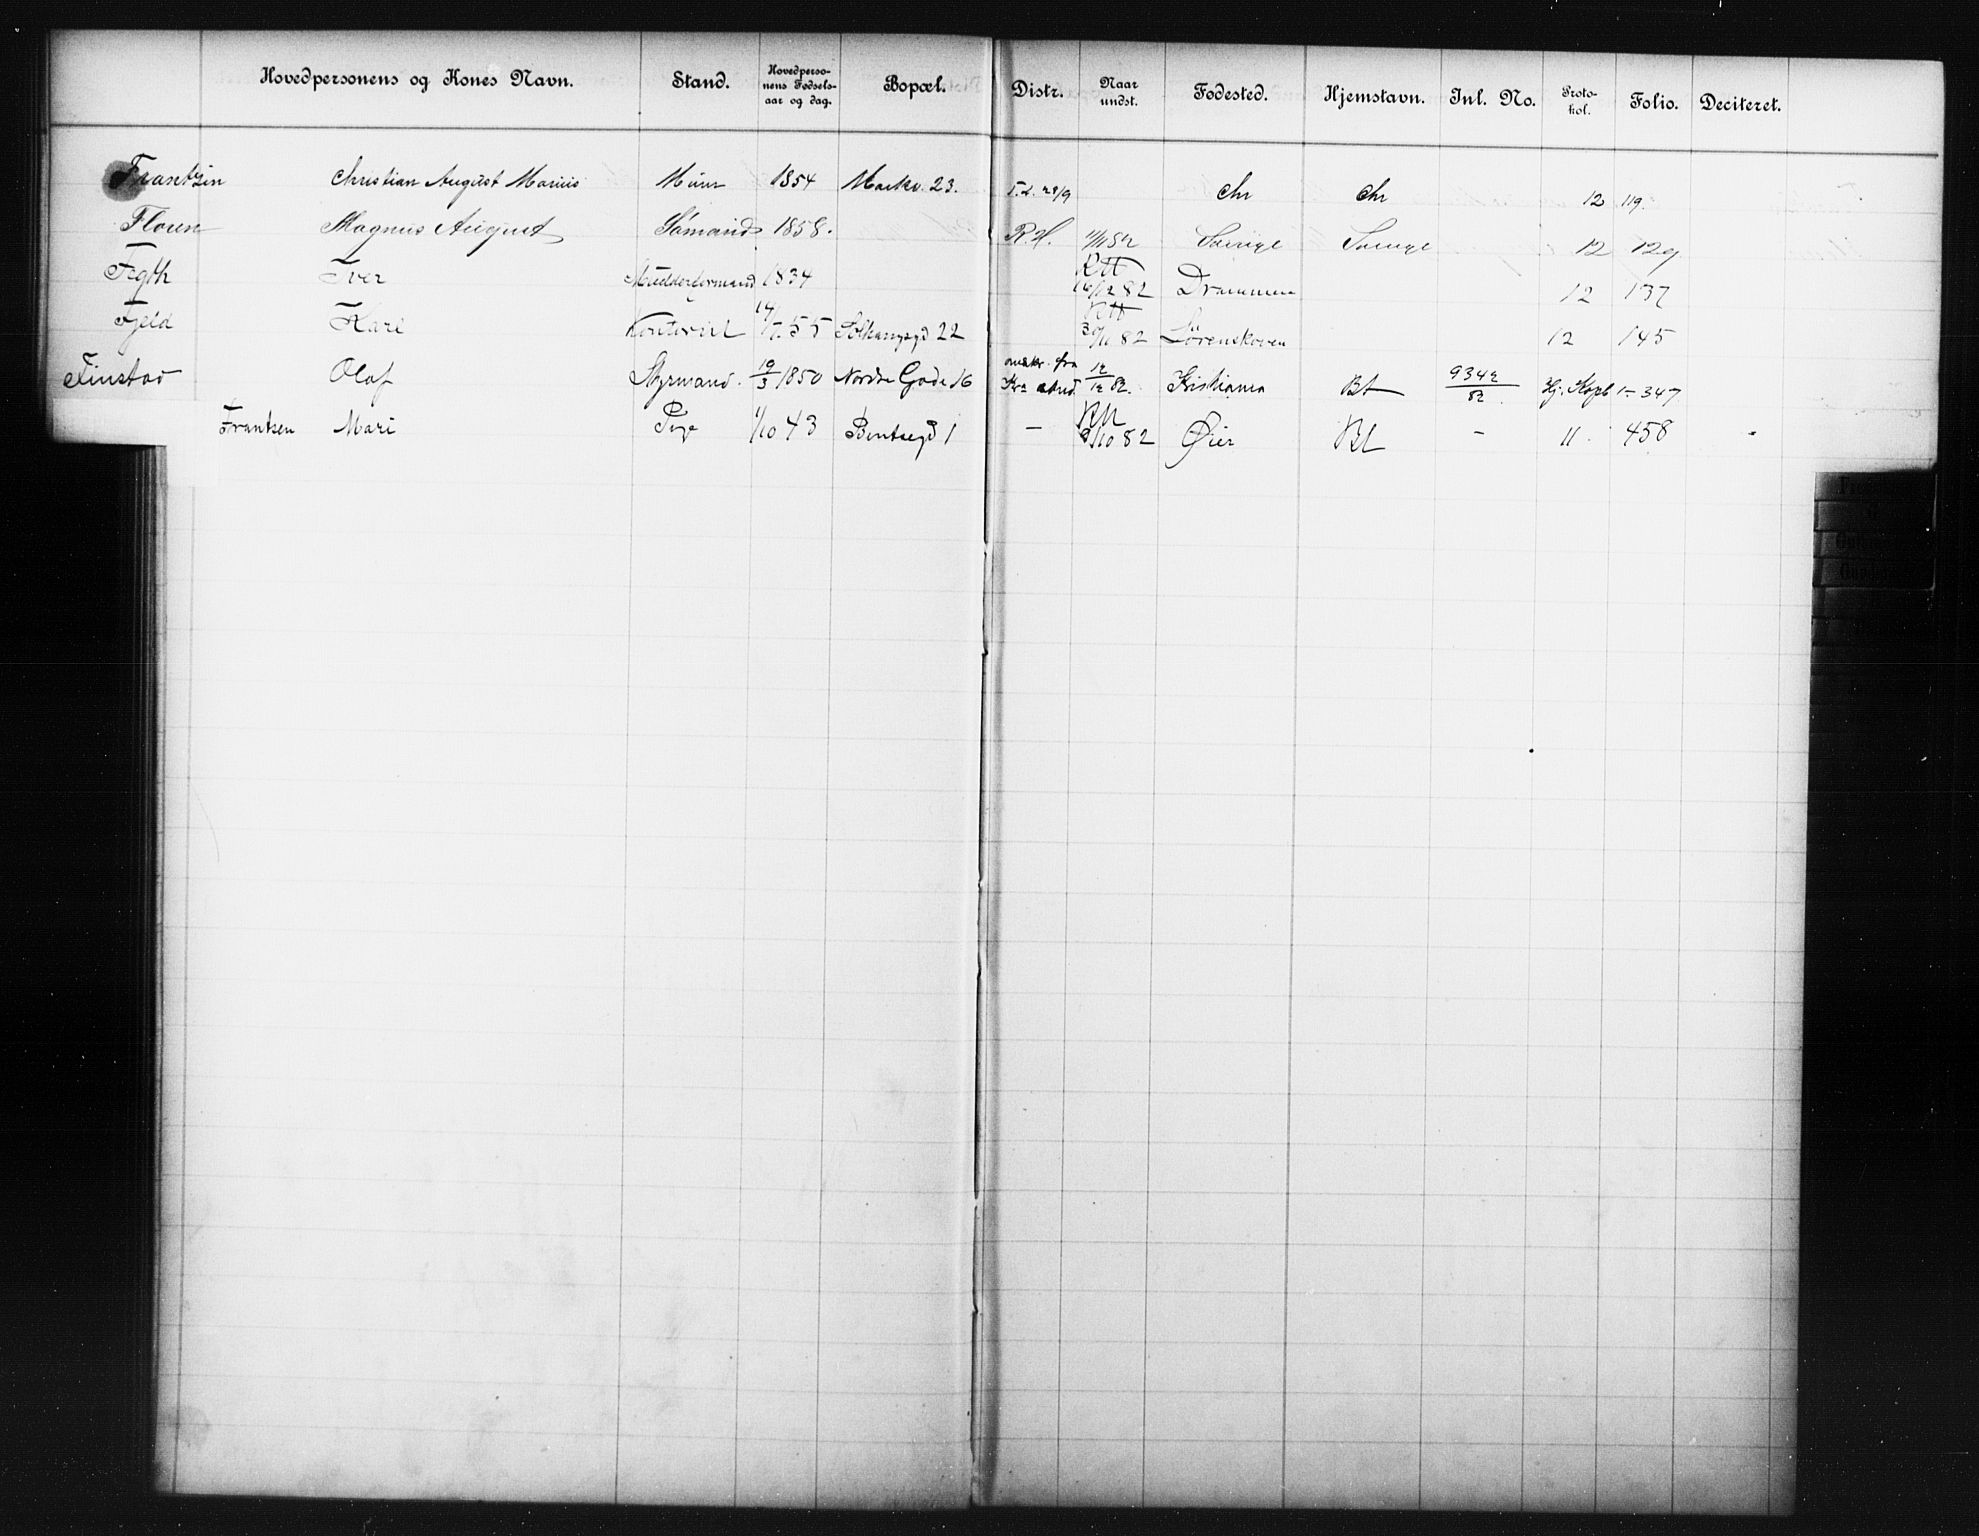 Hovedpersonens og Kones Navn. Stand. Hovedperso-nens Fødsels-aar og dag. Bopæl. Distr. Naar undst. Fødested. Hjemstavn. Inl. No. Proto-kol. Folio. Deciteret.
Frantzen Christian August Marius Murer 1854 Markv. 23. 28/9 Chr Chr 12 119.
Floren Magnus August Sømand 1858. R.H. 11/11 82 Sverige Sverige 12 129
Fegth Iver Mudderformand 1834 RH 16/12 82 Drammen 12 137
Fjeld Karl Kontorist 14/7 55 22 RH 30/11 82 Lørenskoven 12 145
Finstad Olaf Styrmand. 19/3 1850 Nordre Gade 16 omskr. fra 12/12 82. Kristiania Bt 9342/82. Hj. Kopb 1- 347
Frantzen Mari Pige 1/10 43 Bentsegd 1 - RH 9/10 82 Øier Bt - 11. 458